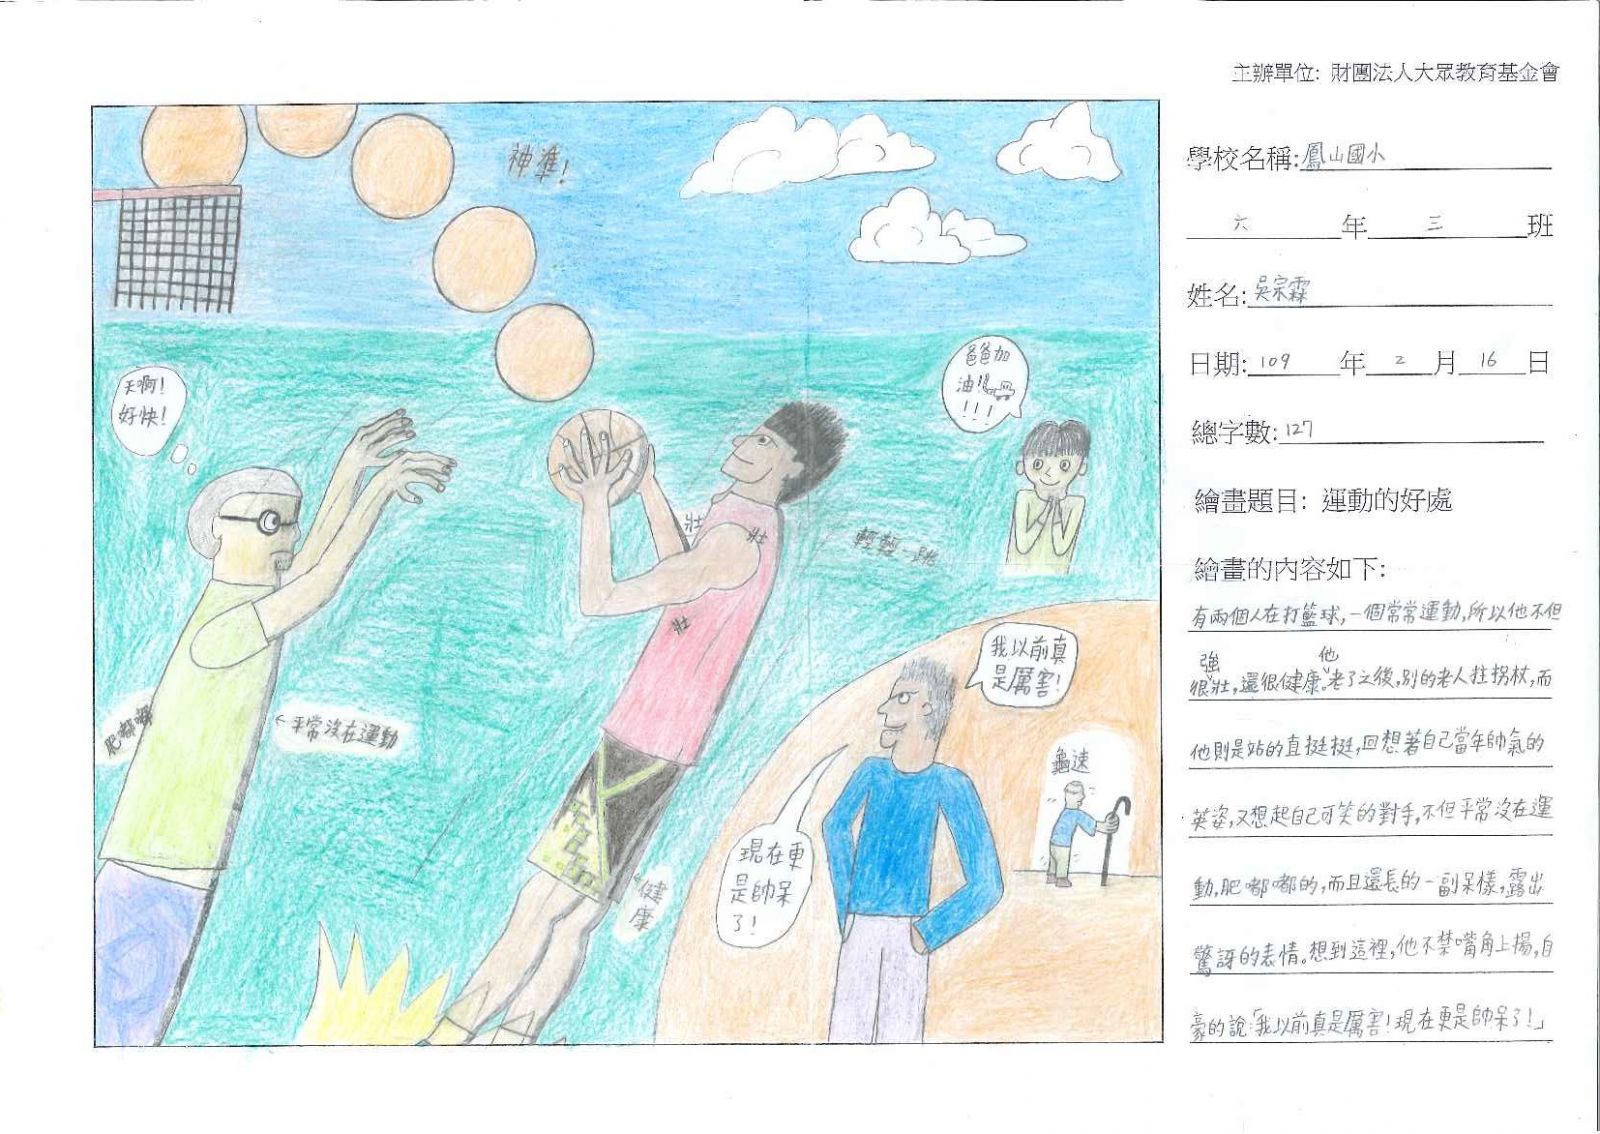 主辦單位: 財團法人大眾教育基金會
學校名稱:鳳山國小
六年三班
姓名:吳宗霖
日期:109年2月16日
總字數:127
繪畫題目: 運動的好處
繪畫的內容如下:
有兩個人在打籃球,一個常常運動,所以他不但
很強壯,還很健康。他老了之後,別的老人拄拐杖,而
他則是站的直挺挺,回想著自己當年帥氣的
英姿,又想起自己可笑的對手,不但平常沒在運
動,肥嘟嘟的,而且還長的一副呆樣,露出
驚訝的表情。想到這裡,他不禁嘴角上揚,自
豪的說:「我以前真是厲害!現在更是帥呆了!」
神準!
天啊!
好快!
爸爸加
油!!
!!!
壯
壯
壯
輕輕一跳
肥嘟嘟
←平常沒在運動
健
康
我以前真
是厲害!
現在更
是帥呆
了!
龜速